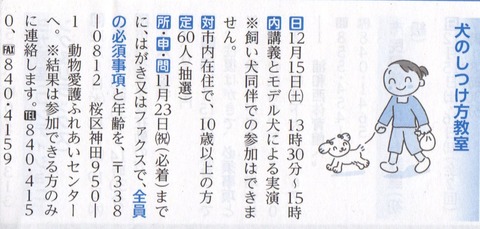 犬のしつけ方教室
日12月15日㈯　13時30分〜15時
内講義とモデル犬による実演
※飼い犬同伴での参加はできま
せん。
対市内在住で、10歳以上の方
定60人（抽選）
所・申・問11月23日㈷（必着）まで
に、はがき又はファクスで、全員
の必須事項と年齢を、〒338
―0812　桜区神田950―
1　動物愛護ふれあいセンター
へ。※結果は参加できる方のみ
に連絡します。TEL840・415
0、FAX840・4159